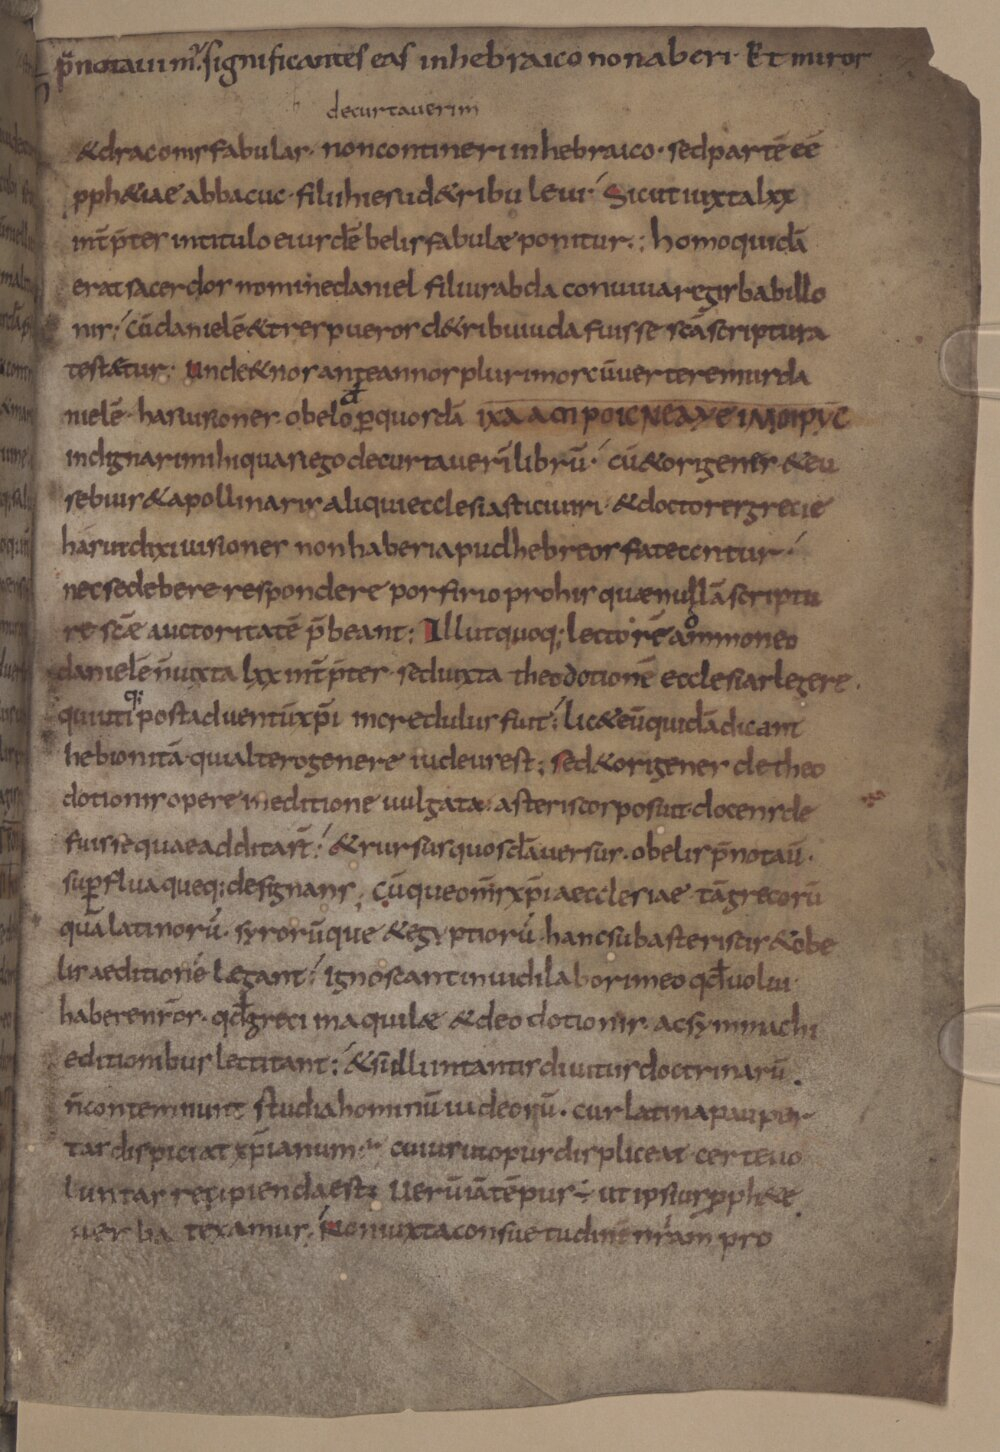 p̄notauim᷒. significantes eas inhebraico nonaberi· Et miror
decurtauerim
&draconis fabulas· noncontineri inhebraico· sedpartē eē
pph&iae abbacuc· filii hiesu d&ribu leui· Sicut iuxta lxx
int̄p̄ter intitulo eiusdē belis fabulæ ponitur· homo quidā
erat sacerdos nomine daniel filius abda conuiua regis babillo
nis· Cū danielē & tres pueros d&ribu iuda fuisse sc̄ā scriptura
testætur· Unde & nos anteannos plurimos cū uerteremus da
nielē· has uisiones obelo p̱ quosdā
indignari mihi quasi ego decurtauerī librū· cū & origenes & eu
sebius & apollinaris aliqui ecclesiastici uiri· & doctores grecie
has ut dixi uisiones non haberi apud hebreos fateantur·
nec se debere respondere porfirio pro his quæ nullā scriptu
re sc̄æ auctoritatē p̄beant: Illut quoq; lectorē ammoneo
danielē n̄ iuxta lxx int̄p̄ter sed iuxta theodotionē ecclesias legere·
qui uti q; post aduentū xp̄i incredulus fuit· lic& eū quidā dicant
hebionitā· qui altero genere iudeus est; sed & origenes de theo
dotionis opere in editione uulgata· asteriscos posuit· docens de
fuisse quae addita st̄· & rursus quosdā uersus· obelis p̄notau̅·
sup̱flua queq; designans; Cūque om̄s xp̄i aecclesiae tā grecorū
quā latinorū· syrorūque & egyptiorū· hanc sub asteriscis & obe
lis aeditionē legant· Ignoscant inuidi labori meo qd̄ uolui
habere nr̄os· qd̄ greci in aquilæ & deodotionis ac symmachi
editionibus lectitant· & si illi in tantis diuitiis doctrinarū·
n̄ contemnunt studia hominū iudeorū· cur latina pauper
tas dispiciat xp̄ianum· cuius ut opus displiceat certe uo
luntas recipienda est; Uerū iā tēpus ÷ ut ipsius pph&æ
uerba texamus. Non iuxta consuetudinē nr̄am pro